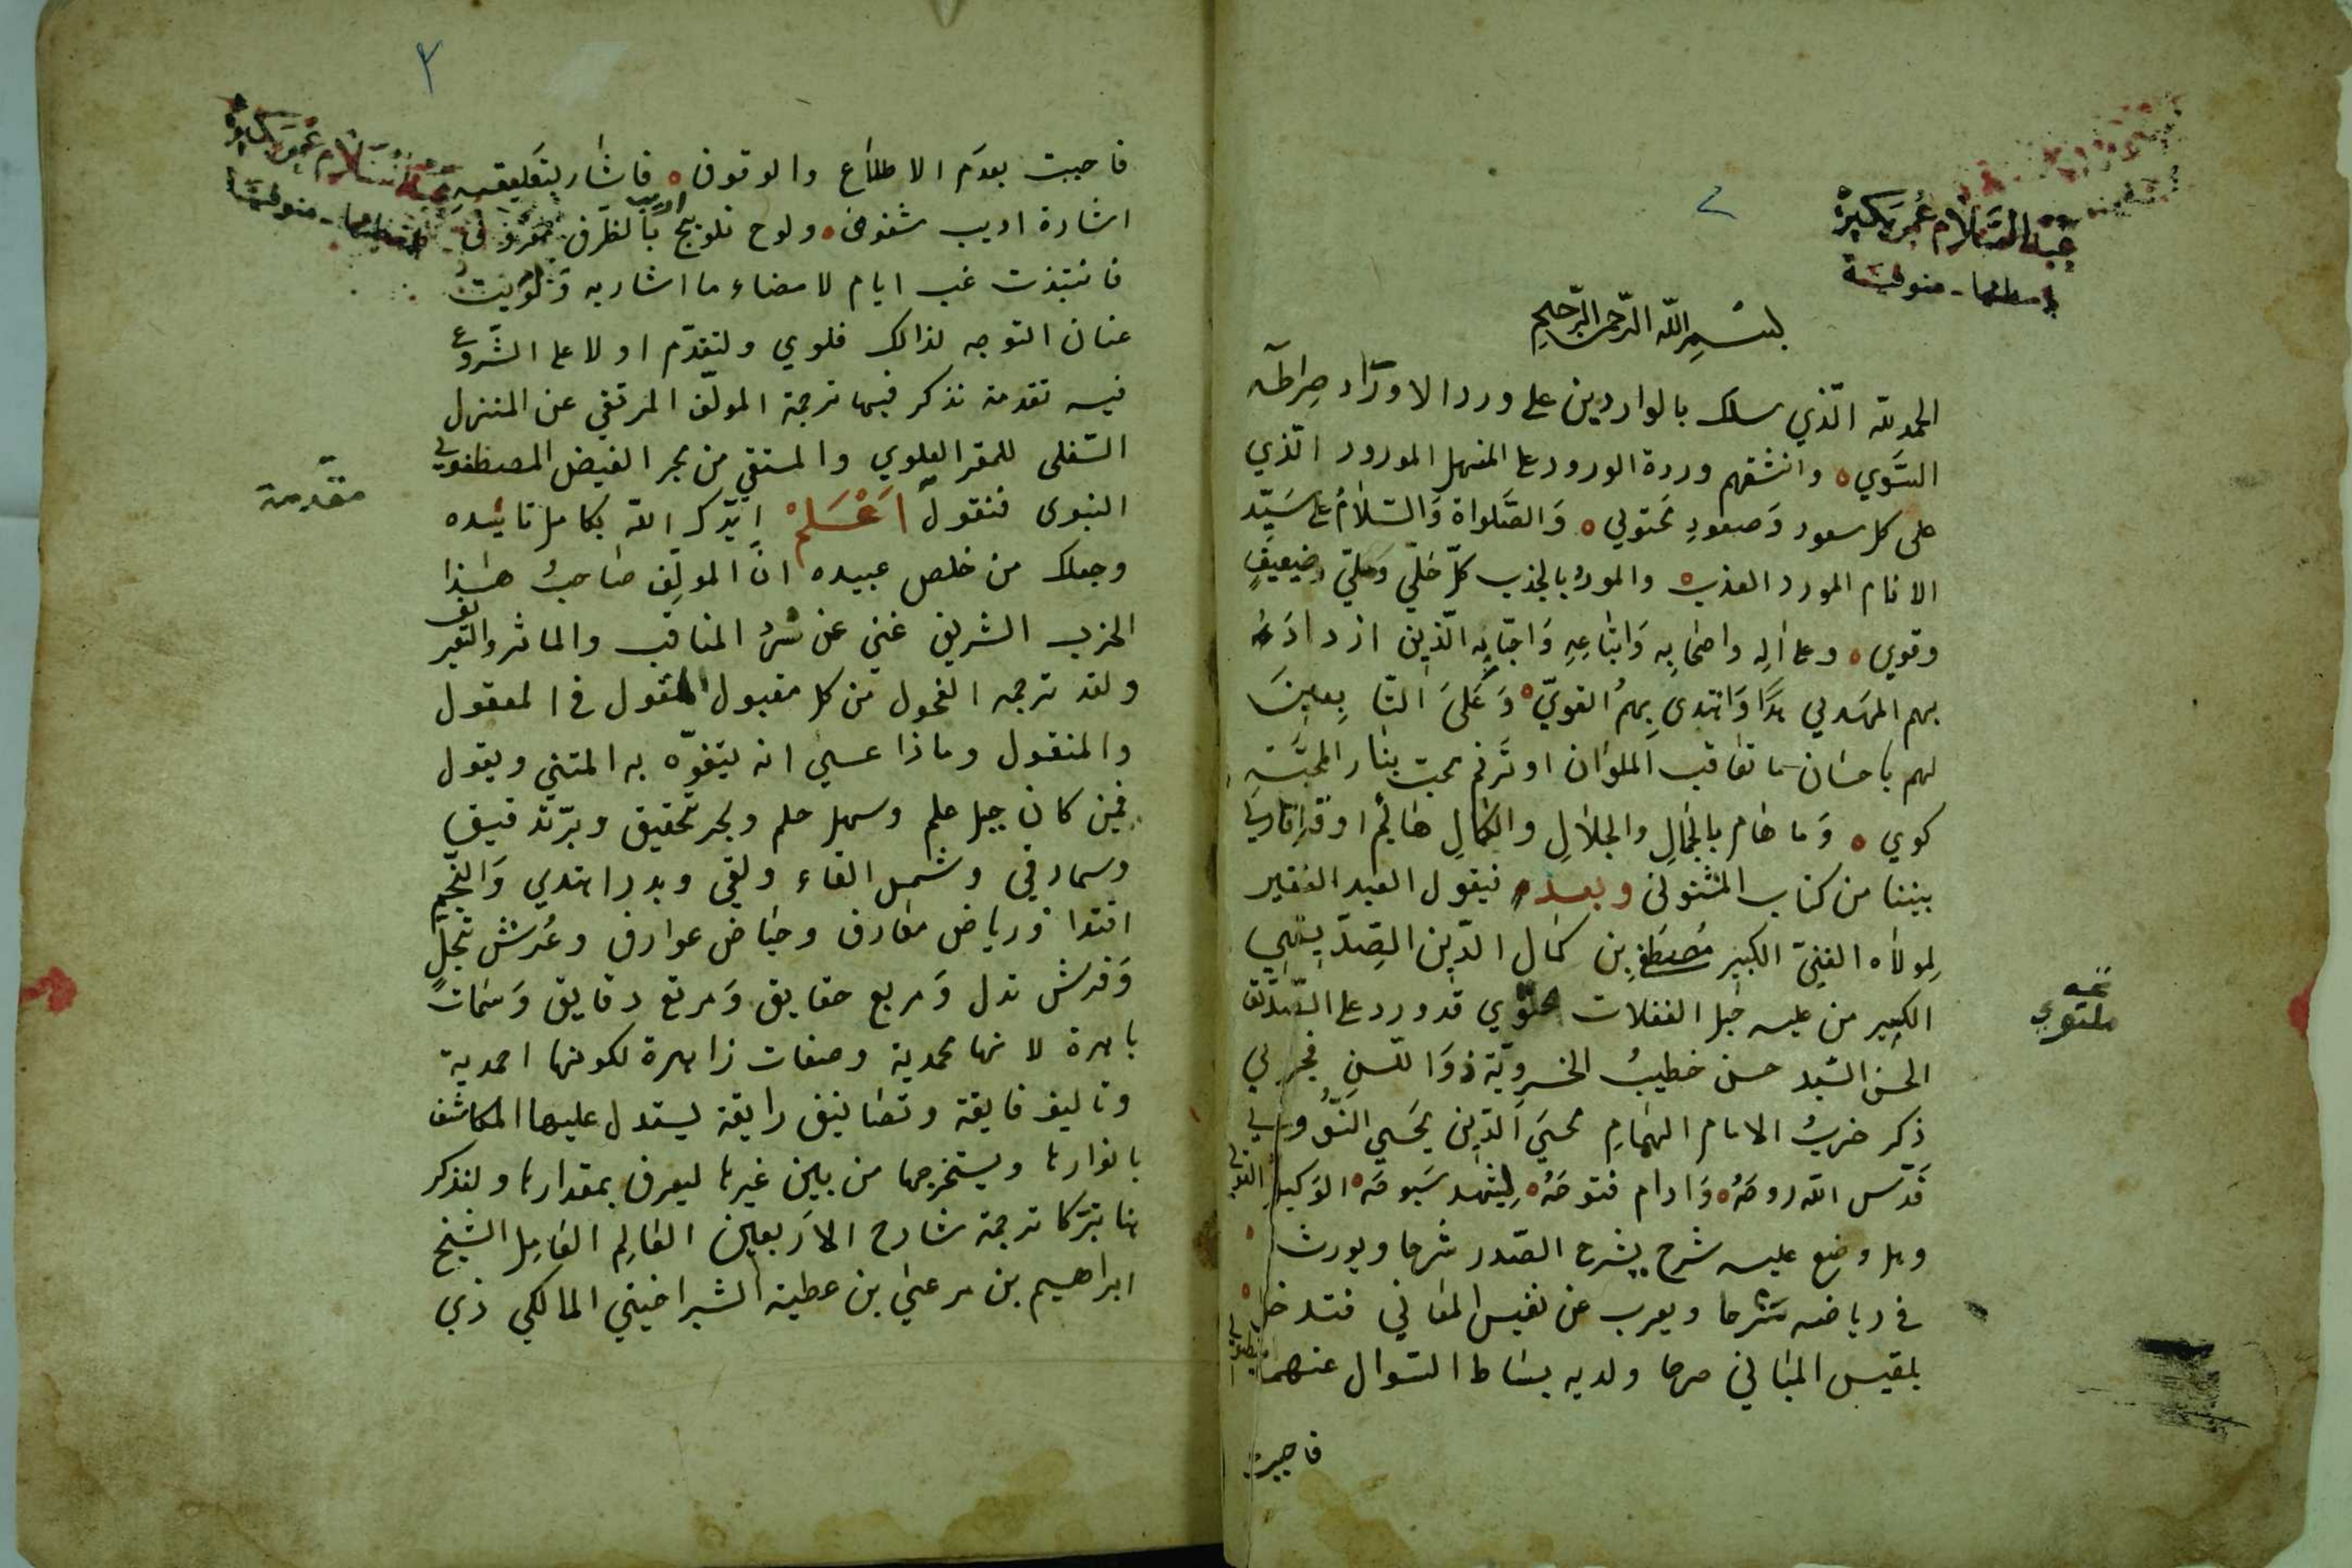 عبد السلام عمر بكيرة
اسطنها - منوفية
بسم الله الرحمن الرحيم
الحمد لله الّذي سلك بالواردين على ورد الاوراد صراطه
السَّوي ه وانشقهم وردة الورود على المنهل المورود الّذي
على كل سعود وَصعودٍ محتوي ه وَالصَّلواة وَالسَّلامُ على سَيّد
الانام المورد العذب ه والمورد بالجذب كلّ خليّ وَمليّ وضعيفٍ
وقوي ه وعلى الِه واصحَابِه وَاتبَاعِهِ وَاحبّابِه الّذين ازدادَ
بهم المهدي هدًا وَاهتدى بهمُ الغويّ ه وَعَلىَ التَّابِعينَ
لهم باحسَان ما تعَاقب الملوَان او تَرنم محب بنار المحبَّة
كوي ه وَما هَام بالجَمالِ والجلالِ والكمالِ هَائم او قرا قاري
بيتا من كتاب المثنوي وبعد فيقول العبد الفقير
لمولاه الغنيّ الكبير مُصطفى بن كمال الدّين الصّدّيقي
الكبير من عليه حبل الغفلات ملتوي قد ورد علىّ الصّدّيق
الحسن السّيد حسن خطيبُ الخسرويّة ذوَ اللسن فجرى لي
ذكر حزبُ الامام الهُمامِ محييَ الدّين يحيي النّووي
قدّس الله روحَهُ ه وَادام فتوحَهُ ه
وهل وضع عليه شرح يشرح الصّدر شرحا ويورث
في رياضه سَرحا ويعرب عن نفيس المعَاني فتدخل
بلقيس المبَاني صرحا ولديه بسَاط السّوال عنهما
ملتوي
فاجبت
٣
فاجبت بعدَم الاطلاع والوقوف ه فاشَار بتعليقه
اشارة اديب شغوف ه ولوح تلويح اريب بالظَرف معروف
فانتبذت غب ايام لامضاء ما اشار به وَلوَيتُ
عنان التوجه لذالك فلوي ولنقدّم اولا على الشّروع
فيه تقدمة نذكر فيها ترجمة المولّف المرتقي عن المنزل
السّفلى للمقر العلوي والمستقي من بحر الفيض المصطفوي
النبوى فنقول اَعْلَمْ ايّدك الله بكامل تائيده
وجعلك من خلص عبيده انَّ المولِف صَاحبُ هَذا
الحزب الشريف غني عن سرد المناقب والماثر والتعريف
ولقد ترجمه الفحول من كل مقبول القول في المعقول
والمنقول وماذا عسي انه يتفوّه به المثني ويقول
فيمن كان جبل علم وسهل حلم وبحر تحقيق وبرّ تدقيق
وسما رقي وشمس القاء ولقى وبدر اهتدي وَالنجم
اقتدا ورياض معَارف وحيَاض عوارف وعُرش تجلّ
وَفرش تدل وَمربع حقايق وَمرتع دقايق وَسمات
باهرة لانها محمدية وصفات زاهرة لكونها احمدية
وتاليف فايقة وتصَانيف رايقة يستدل عليها المكاشف
بانوارها ويستخرجها من بين غيرها ليعرف بمقدارها ولنذكر
هنا تبرّكا ترجمة شارح الاَربعين العَالِم العَامِل الشيخ
ابراهيم بن مرعيْ بن عطية الشبراخيتي المالكي ذي
مقدّمة